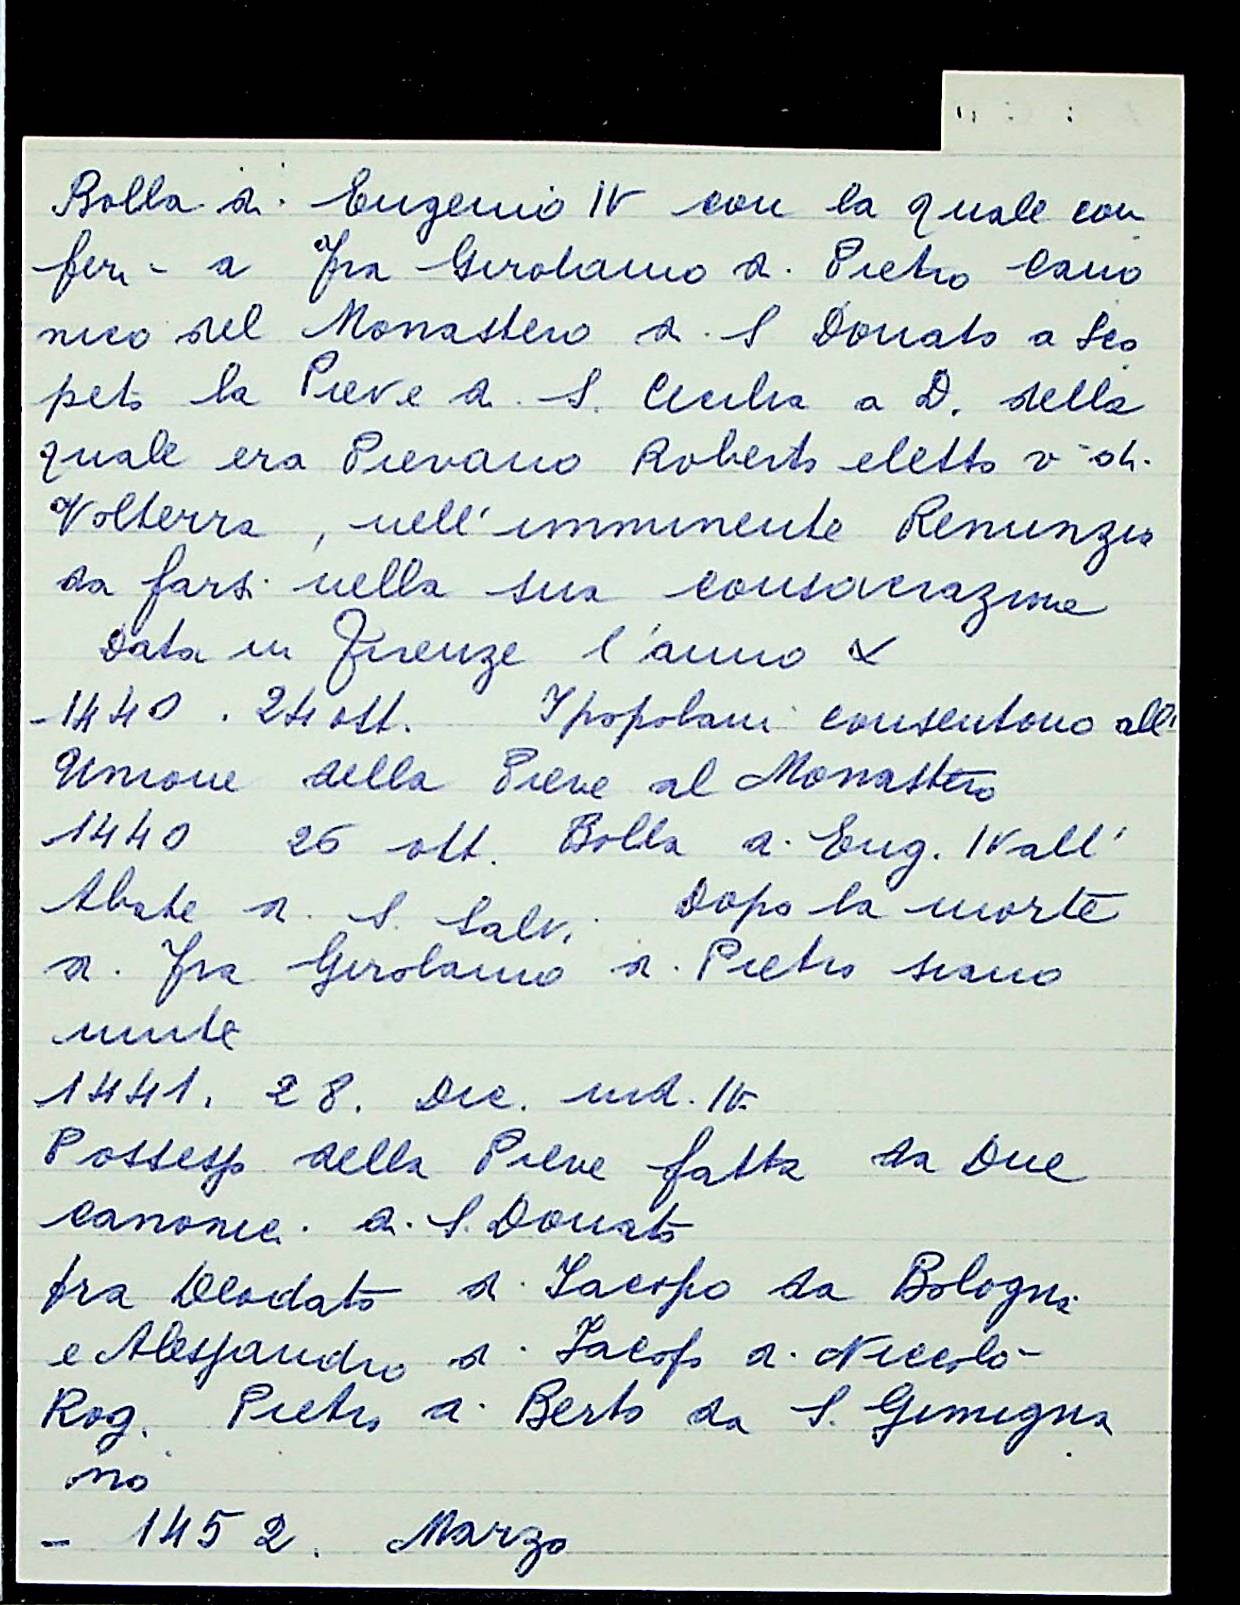 Bolla di Eugenio IV con la quale con
ferì a Fra Girolamo di Pietro Cano
nico del Monastero di S Donato a Sco
peto la Pieve di S. Cecilia a D. della
quale era Pievano Roberto eletto v di
Volterra, nell'imminente Renunzia
da farsi nella sua consacrazione
Data in Firenze l'anno X
- 1440 . 24 ott. I popolani consentono all'
Unione della Pieve al Monastero
1440 26 ott. Bolla di Eug. IV all'
Abate di S. Salv. Dopo la morte
di Fra Girolamo di Pietro siano
unite
1441. 28. Dic. ind. IV
Possesso della Pieve fatta da Due
canonici di S. Donato
fra Deodato di Iacopo da Bologna
e Alessandro di Iacopo di Niccolò
Rog. Pietro di Berto da S. Gimigna
no
- 1452. Marzo